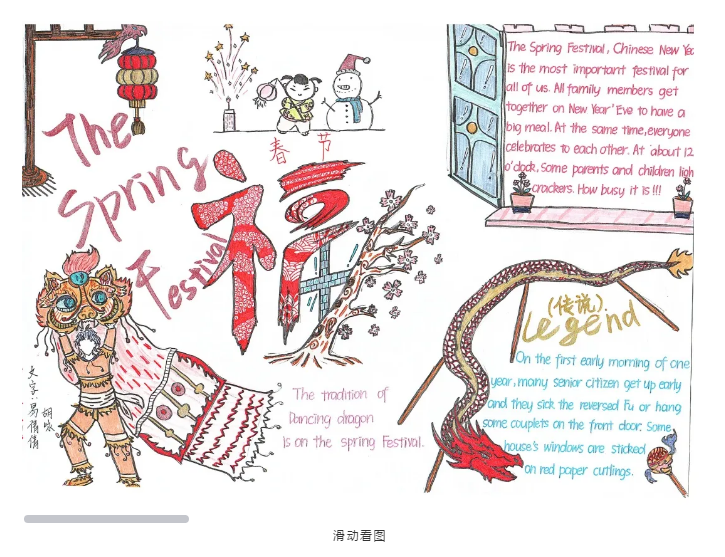 The
Spring
Festival
春节
福
The Spring Festival, Chinese New Ye
is the most important festival for
all of us. All family members get
together on New Year'Eve to have a
big meal. At the same time, everyone
celebrates to each other. At about 12
o'clock, Some parents and children ligh
crackers. How busy it is!!!
(传说).
Legend
On the first early morning of one
year, many senior citizen get up early
and they sick the reversed Fu or hang
some couplets on the front door. Some
house's windows are sticked
on red paper cuttings.
The tradition of
Dancing dragon
is on the spring Festival.
文字:易倩倩
胡咏
滑动看图